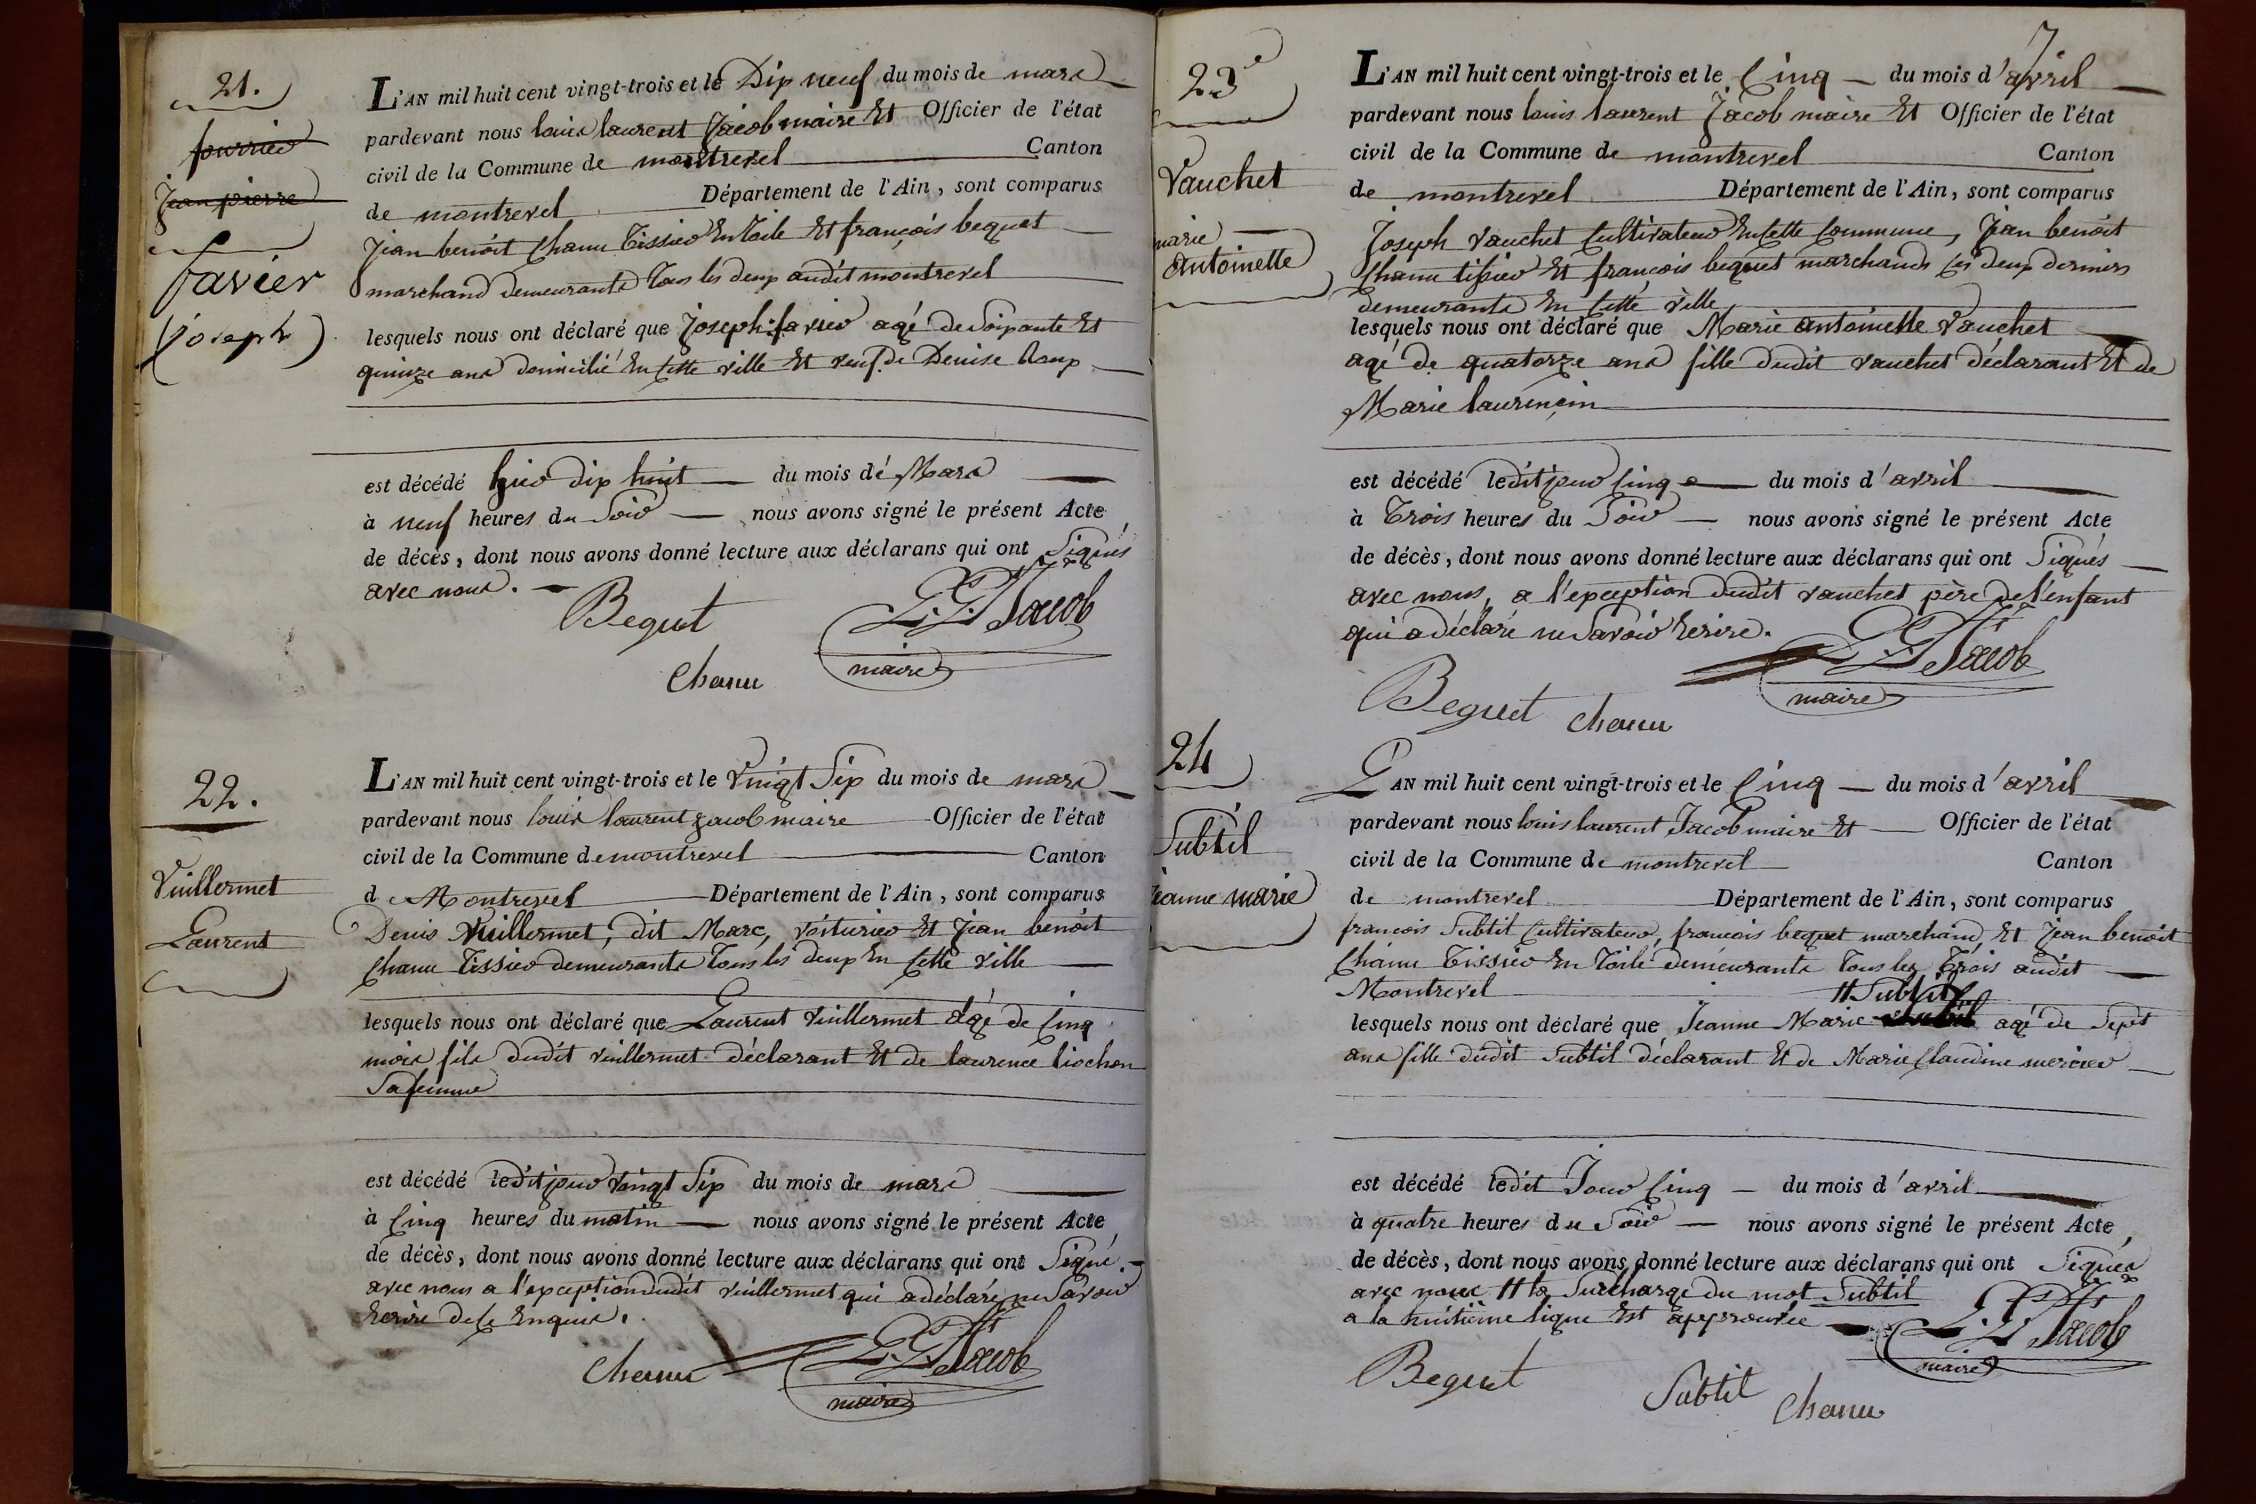 21.
fourrier
Jean pierre
favier
(joseph)
L'AN mil huit cent vingt-trois et le Dix neuf du mois de mars
pardevant nous louis laurent Jacob maire Et Officier de l'état
civil de la Commune de montrevel Canton
de montrevel Département de l'Ain, sont comparus
Jean benoît Chanu Tissier En Toile Et françois bequet
marchand demeurants Tous les deux audit montrevel
lesquels nous ont déclaré que Joseph favier agé de Soixante Et
quinze ans domicilié En cette ville Et veuf de Denise
est décédé hier dix huit du mois de Mars
à neuf heures du Soir nous avons signé le présent Acte
de décès, dont nous avons donné lecture aux déclarans qui ont Signés
avec nous.
Bequet
L. Lt Jacob
maire
Chanu
22.
Vuillermet
Laurent
L'AN mil huit cent vingt-trois et le Vingt Six du mois de mars
pardevant nous louis laurent jacob maire Officier de l'état
civil de la Commune de montrevel Canton
de Montrevel Département de l'Ain, sont comparus
Denis Vuillermet, dit Marc, voiturier Et Jean benoît
Chanu Tissier demeurants Tous les deux En cette ville
lesquels nous ont déclaré que Laurent Vuillermet âgé de Cinq
mois fils dudit vuillermet déclarant Et de laurence liochon
Sa femme
est décédé ledit jour vingt Six du mois de mars
à Cinq heures du matin nous avons signé le présent Acte
de décès, dont nous avons donné lecture aux déclarans qui ont Signé.
avec nous a l'exception dudit vuillermet qui a déclaré ne Savoir
Ecrire de ce Enquis.
Chanu
L. Lt Jacob
maire
7
23e
Vauchet
marie
Antoinette
L'AN mil huit cent vingt-trois et le Cinq du mois d'avril
pardevant nous louis laurent Jacob maire Et Officier de l'état
civil de la Commune de montrevel Canton
de montrevel Département de l'Ain, sont comparus
Joseph vauchet Cultivateur En cette Commune, Jean benoît
Chanu tissier Et françois bequet marchands ces deux derniers
demeurants En cette ville
lesquels nous ont déclaré que Marie antoinette Vauchet
agé de quatorze ans fille dudit vauchet déclarant Et de
Marie laurençin
est décédé ledit jour Cinq du mois d'avril
à Trois heures du Soir nous avons signé le présent Acte
de décès, dont nous avons donné lecture aux déclarans qui ont Signés
avec nous, a l'exception dudit vauchet père de l'enfant
qui a déclaré ne Savoir Ecrire.
L. Lt Jacob
maire
Bequet Chanu
24
Subtil
jeanne marie
L'AN mil huit cent vingt-trois et le Cinq du mois d'avril
pardevant nous louis laurent Jacob maire Et Officier de l'état
civil de la Commune de montrevel Canton
de montrevel Département de l'Ain, sont comparus
françois Subtil Cultivateur, françois bequet marchand, Et Jean benoît
Chanu Tissier En Toile demeurants Tous les Trois audit
Montrevel
# Subtil
lesquels nous ont déclaré que Jeanne Marie agé de Sept
ans fille dudit Subtil déclarant Et de Marie Claudine mercier
est décédé ledit Jour Cinq du mois d'avril
à quatre heures du Soir nous avons signé le présent Acte,
de décès, dont nous avons donné lecture aux déclarans qui ont Signés
avec nous # la Surcharge du mot Subtil
a la huitième ligne Est approuvée
L. Lt Jacob
maire
Bequet Subtil Chanu